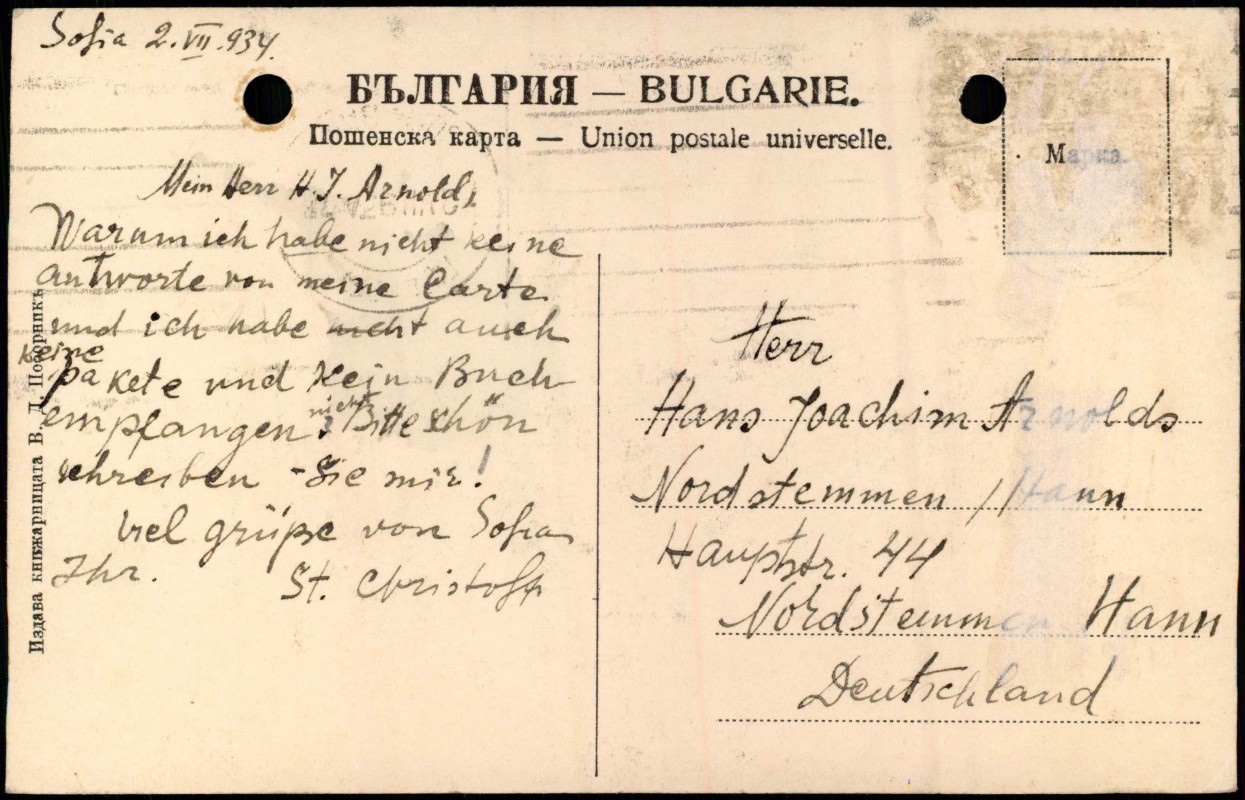 Sofia 2.VII.934.
БЪЛГАРИЯ — BULGARIE.
Пощенска карта — Union postale universelle.
Марка.
Mein Herr H. J. Arnolds
Warum ich habe nicht keine
antworte von meine Carte
und ich habe nicht auch
keine
pakete und kein Buch
nicht
empfangen? Bitte schön
schreiben - Sie mir!
Viel grüße von Sofia
Ihr. St. Christoff
Herr
Hans Joachim Arnolds
Nordstemmen / Hann
Hauptstr. 44
Nordstemmen Hann
Deutschland
Издава книжарницата В. Д.